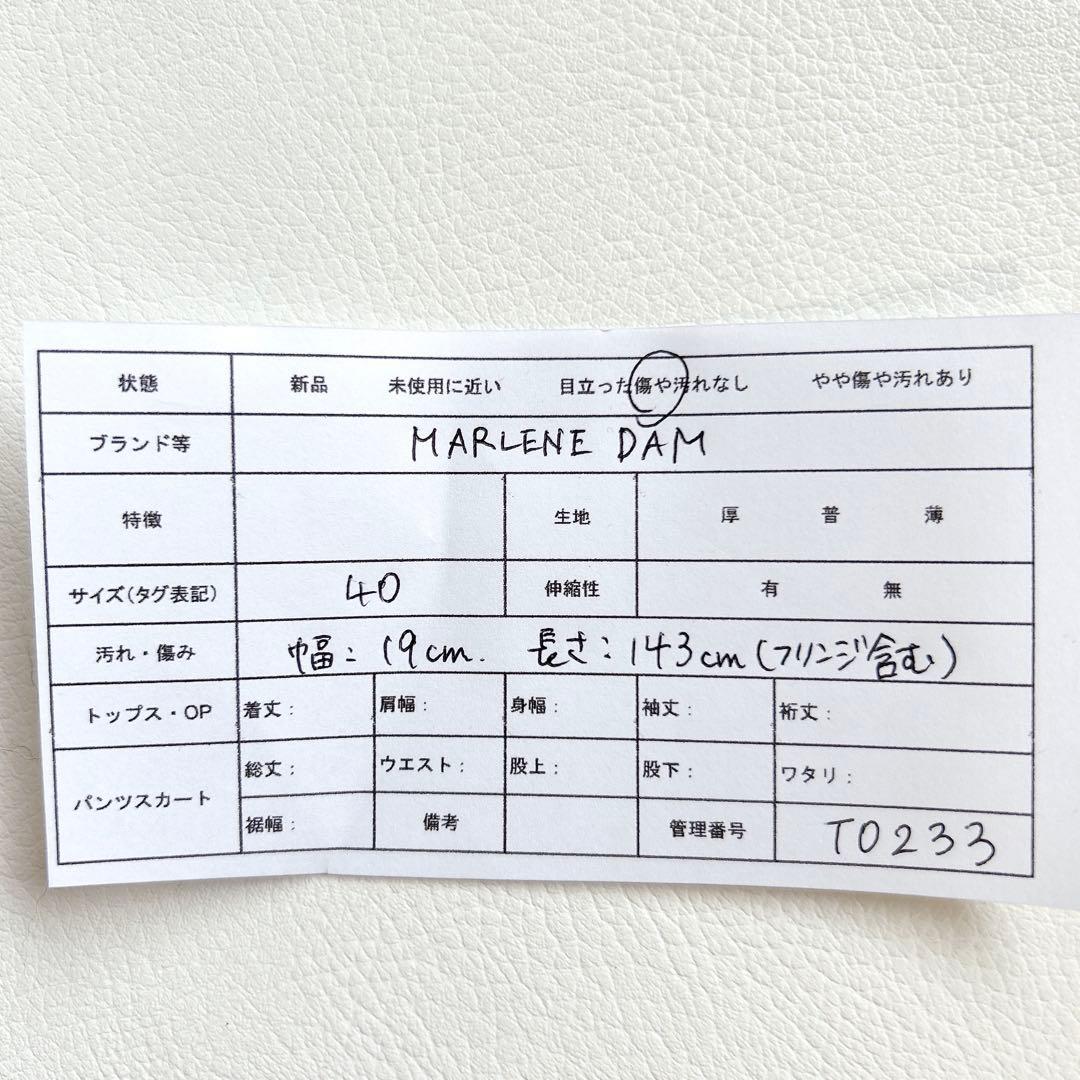 状態 新品 未使用に近い 目立った傷や汚れなし やや傷や汚れあり
ブランド等 MARLENE DAM
特徴 生地 厚 普 薄
サイズ(タグ表記) 40 伸縮性 有 無
汚れ・傷み 巾畐: 19cm. 長さ: 143cm(フリンジ含む)
トップス・OP 着丈: 肩幅: 身幅: 袖丈: 裄丈:
パンツスカート 総丈: ウエスト: 股上: 股下: ワタリ:
裾幅: 備考 管理番号 T0233